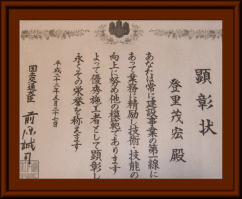 顕彰状
登里茂宏 殿
あなたは常に建設事業の第一線に
あって業務に精励し技術・技能の
向上に努め他の模範であります
よって優秀施工者として顕彰し
永くその栄誉を称えます
国土交通大臣 前原誠司